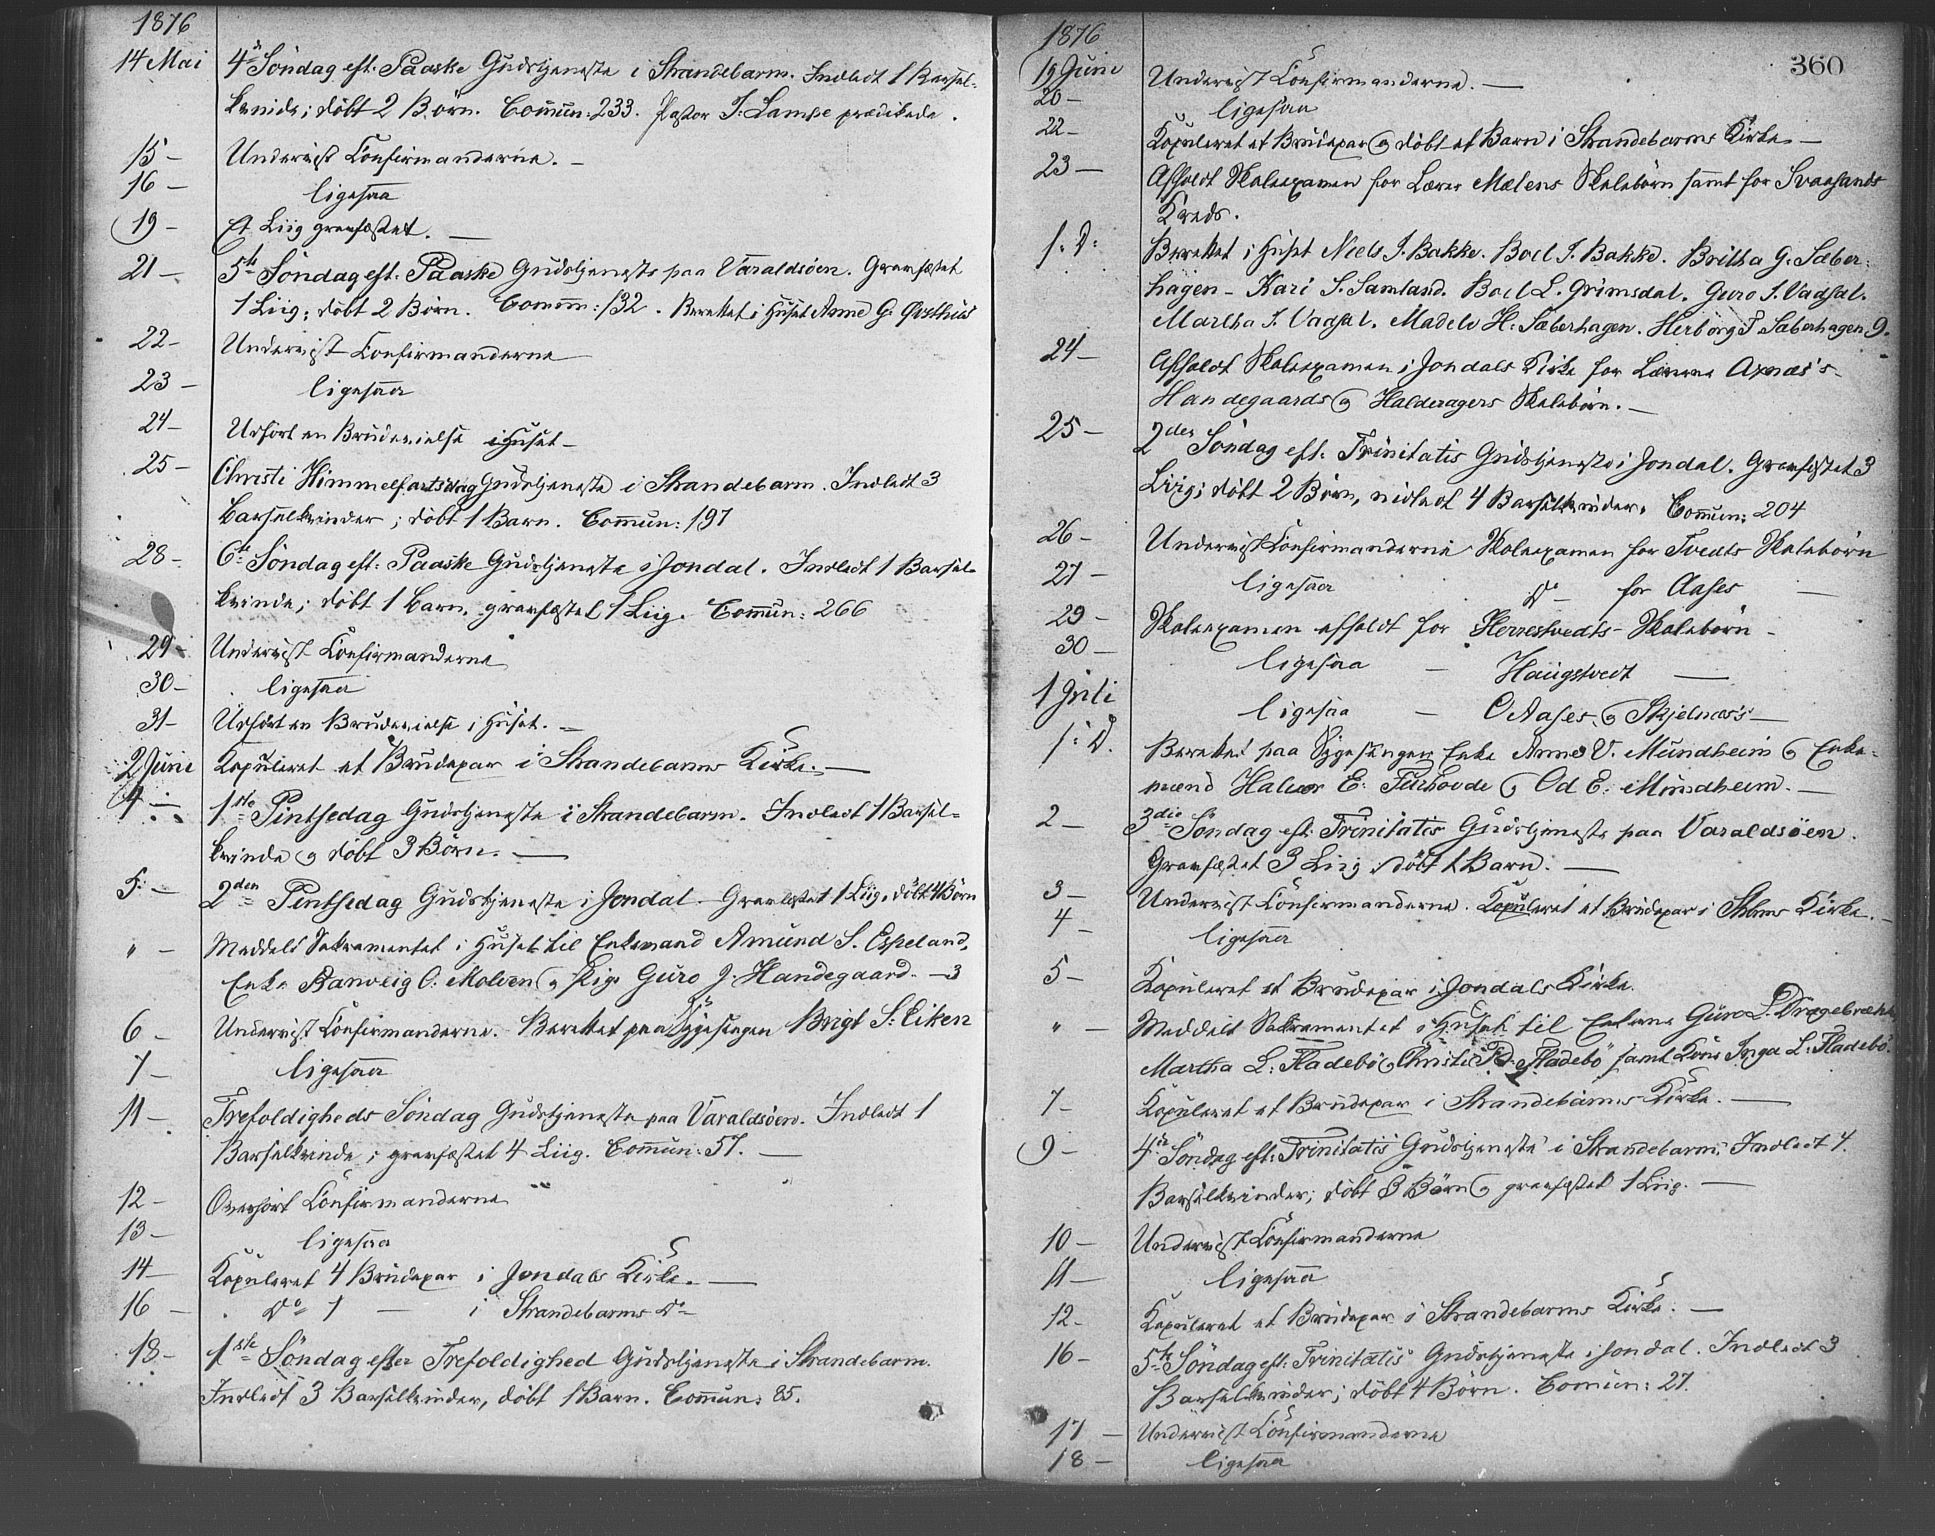 1876
14 Mai 4de Söndag eft. Paaske Gudstjeneste i Strandebarm. Indledt 1 Barsel-
kvinde; döbt 2 Börn. Commun: 233. Pastor J. Lampe prædikede.
15 – Underviist Confirmanderne. –
16 – ligesaa
19 – Et Liig gravfæstet. –
21 – 5te Söndag eft. Paaske Gudstjeneste paa Varaldsöen. Gravfæstet
1 Liig; döbt 2 Börn. Commun: 132. Berettet i Huset Anne G. Qvsthus
22 – Underviist Confirmanderne
23 – ligesaa
24 – Udfört en Brudevielse i Huset –
25 – Christi Himmelfartsdag Gudstjeneste i Strandebarm. Indledt 3
Barselkvinder; döbt 1 Barn. Commun: 197
28 – 6te Söndag eft. Paaske Gudstjeneste i Jondal. Indledt 1 Barsel-
kvinde; döbt 1 Barn, gravfæstet 1 Liig. Commun: 266
29 – Underviist Confirmanderne
30 – ligesaa
31 – Udfört en Brudevielse i Huset. –
2 Juni Kopuleret et Brudepar i Strandebarms Kirke. –
4 – 1ste Pintsedag Gudstjeneste i Strandebarm. Indledt 1 Barsel-
kvinde og döbt 3 Börn. –
5. – 2den Pintsedag Gudstjeneste i Jondal. Gravfæstet 1 Liig, döbt 4 Börn
" – Meddelt Sakramentet i Huset til Enkemand Amund S. Espeland,
Enke Ranveig O. Molven og Pige Guro J. Handegaard. – 3
6 – Underviist Confirmanderne. Berettet paa Sygesengen Brigt S. Eiken
7 – ligesaa
11 – Trefoldigheds Söndag Gudstjeneste paa Varaldsöen. Indledt 1
Barselkvinde; gravfæstet 4 Liig. Commun: 57. –
12 – Overhört Confirmanderne
13 – ligesaa
14 – Kopuleret 4 Brudepar i Jondals Kirke. –
16 – Do 1 – i Strandebarms Do
18 – 1ste Söndag efter Trefoldighed Gudstjeneste i Strandebarm.
Indledt 3 Barselkvinder, döbt 1 Barn. Commun: 85.
1876
360
19 Juni Underviist Confirmanderne. –
20 – ligesaa
22 – Kopuleret et Brudepar og döbt et Barn i Strandebarms Kirke. –
23 – Afholdt Skoleexamen for Lærer Mælens Skolebörn samt for Svaasands
Kreds.
s. D. Berettet i Huset Niels J. Bakke. Boel J. Bakke. Britha G. Sæber-
hagen – Kari S. Samland. Boel L. Grimsdal. Guro S. Vadsal.
Martha S. Vadsal. Madele H. Sæberhagen. Herborg T. Sæberhagen 9.
24 – Afholdt Skoleexamen i Jondals Kirke for Lærerne Axnæs's
Handegaards og Halderagers Skolebörn. –
25 – 2den Söndag eft. Trinitatis Gudstjeneste i Jondal. Gravfæstet 3
Liig; döbt 2 Börn, indledt 4 Barselkvinder. Commun: 204
26 – Underviist Confirmanderne Skoleexamen for Tvedts Skolebörn
27 – ligesaa Do – for Aases –
29 – Skoleexamen afholdt for Herrestvedts Skolebörn –
30 – ligesaa – Haugstvedt –
1 Juli ligesaa – Aases og Skjelnæs's –
s. D. Berettet paa Sygesengen Enke Anna V. Mundheim og Enke-
mænd Halvor E. Furhovde og Od E. Mundheim. –
2 – 3die Söndag eft. Trinitatis Gudstjeneste paa Varaldsöen.
Gravfæstet 3 Liig; döbt 1 Barn. –
3 – Underviist Confirmanderne. Kopuleret et Brudepar i Stbms Kirke. –
4 – ligesaa
5 – Kopuleret et Brudepar i Jondals Kirke.
" – Meddelt Sakramentet i Huset til Enkerne Guro L. Dragebrekke
Martha L. Fladebö og Christi D. Fladebö samt Kone Inga L. Fladebö.
7 – Kopuleret et Brudepar i Strandebarms Kirke. –
9 – 4de Söndag eft. Trinitatis Gudstjeneste i Strandebarm; Indledt 4
Barselkvinder; döbt 8 Börn og gravfæstet 1 Liig. –
10 – Underviist Confirmanderne
11 – ligesaa
12 – Kopuleret et Brudepar i Strandebarms Kirke. –
16 – 5te Söndag eft. Trinitatis Gudstjeneste i Jondal. Indledt 3
Barselkvinder; döbt 4 Börn. Comun: 27.
17 – Underviist Confirmanderne
18 – ligesaa